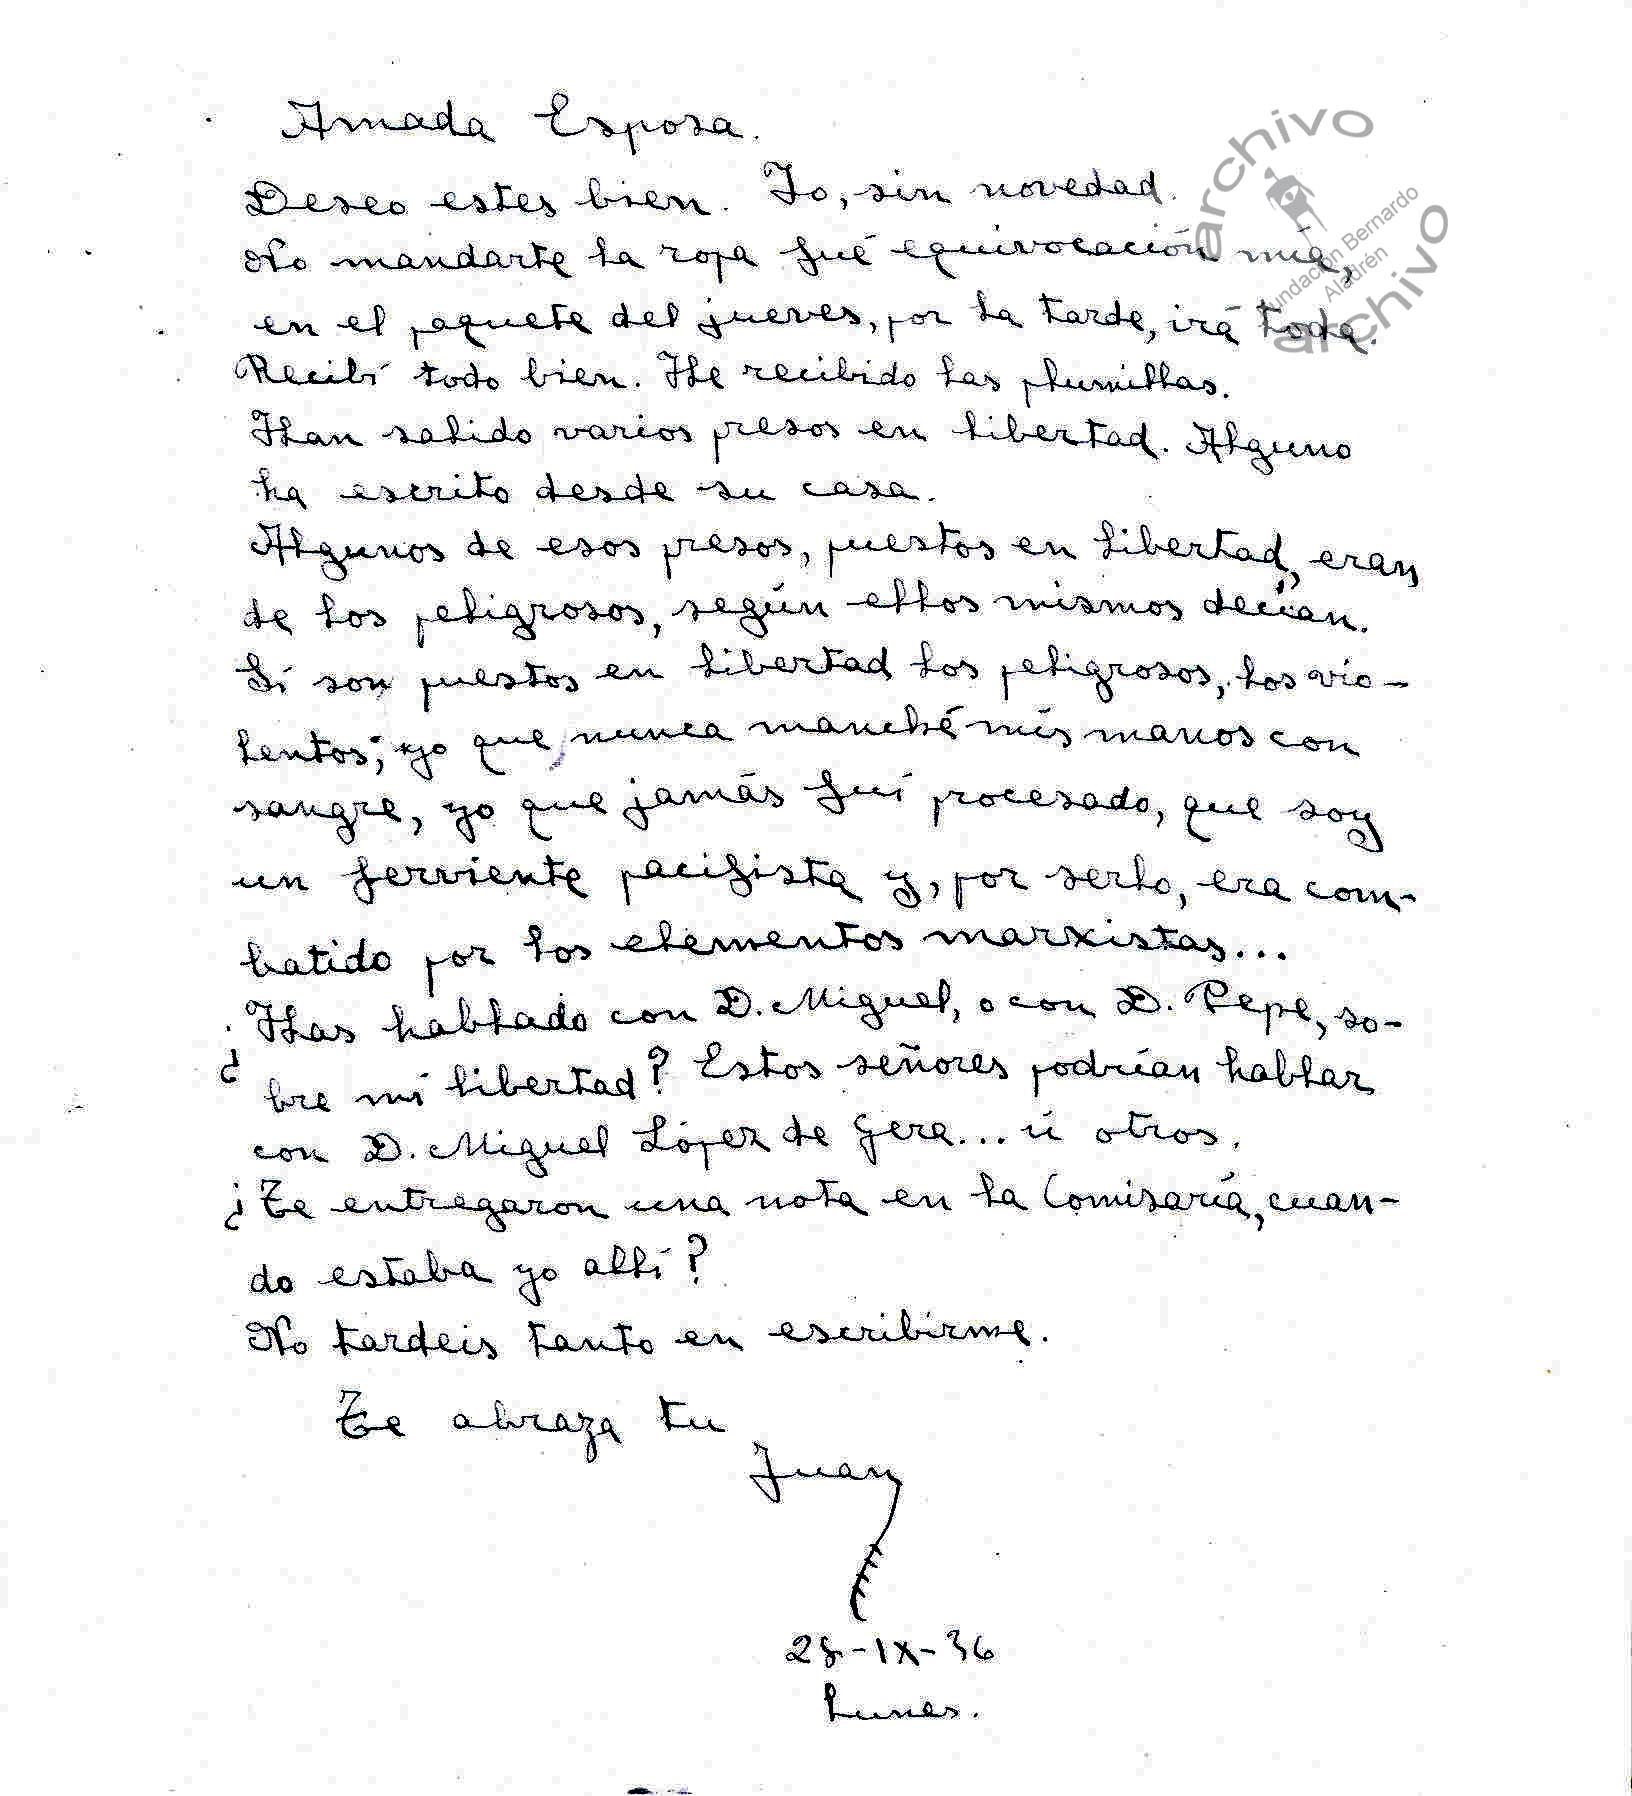 Amada Esposa.
Deseo estes bien. Yo, sin novedad.
No mandarte la ropa fué equivocación mía,
en el paquete del jueves, por la tarde, irá toda.
Recibí todo bien. He recibido las plumillas.
Han salido varios presos en libertad. Alguno
ha escrito desde su casa.
Algunos de esos presos, puestos en libertad, eran
de los peligrosos, según ellos mismos decían.
Si son puestos en libertad los peligrosos, los vio-
lentos; yo que nunca manché mis manos con
sangre, yo que jamás fuí procesado, que soy
un ferviente pacifista y, por serlo, era com-
batido por los elementos marxistas...
¿Has hablado con D. Miguel, o con D. Pepe, so-
bre mi libertad? Estos señores podrían hablar
con D. Miguel López de Gera... ú otros.
¿Te entregaron una nota en la Comisaría, cuan-
do estaba yo allí?
No tardeis tanto en escribirme.
Te abraza tu
Juan
28-IX-36
Lunes.
archivo
Fundación Bernardo
Aladrén
archivo